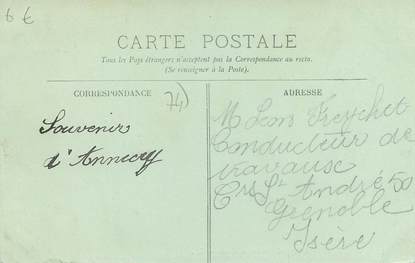 6 €
CARTE POSTALE
Tous les Pays étrangers n'acceptent pas la Correspondance au recto.
(Se renseigner à la Poste).
CORRESPONDANCE
74)
ADRESSE
Souvenirs
d'Annecy
M Léon
Conducteur de
travaux
Crs St André 50
Grenoble
Isère